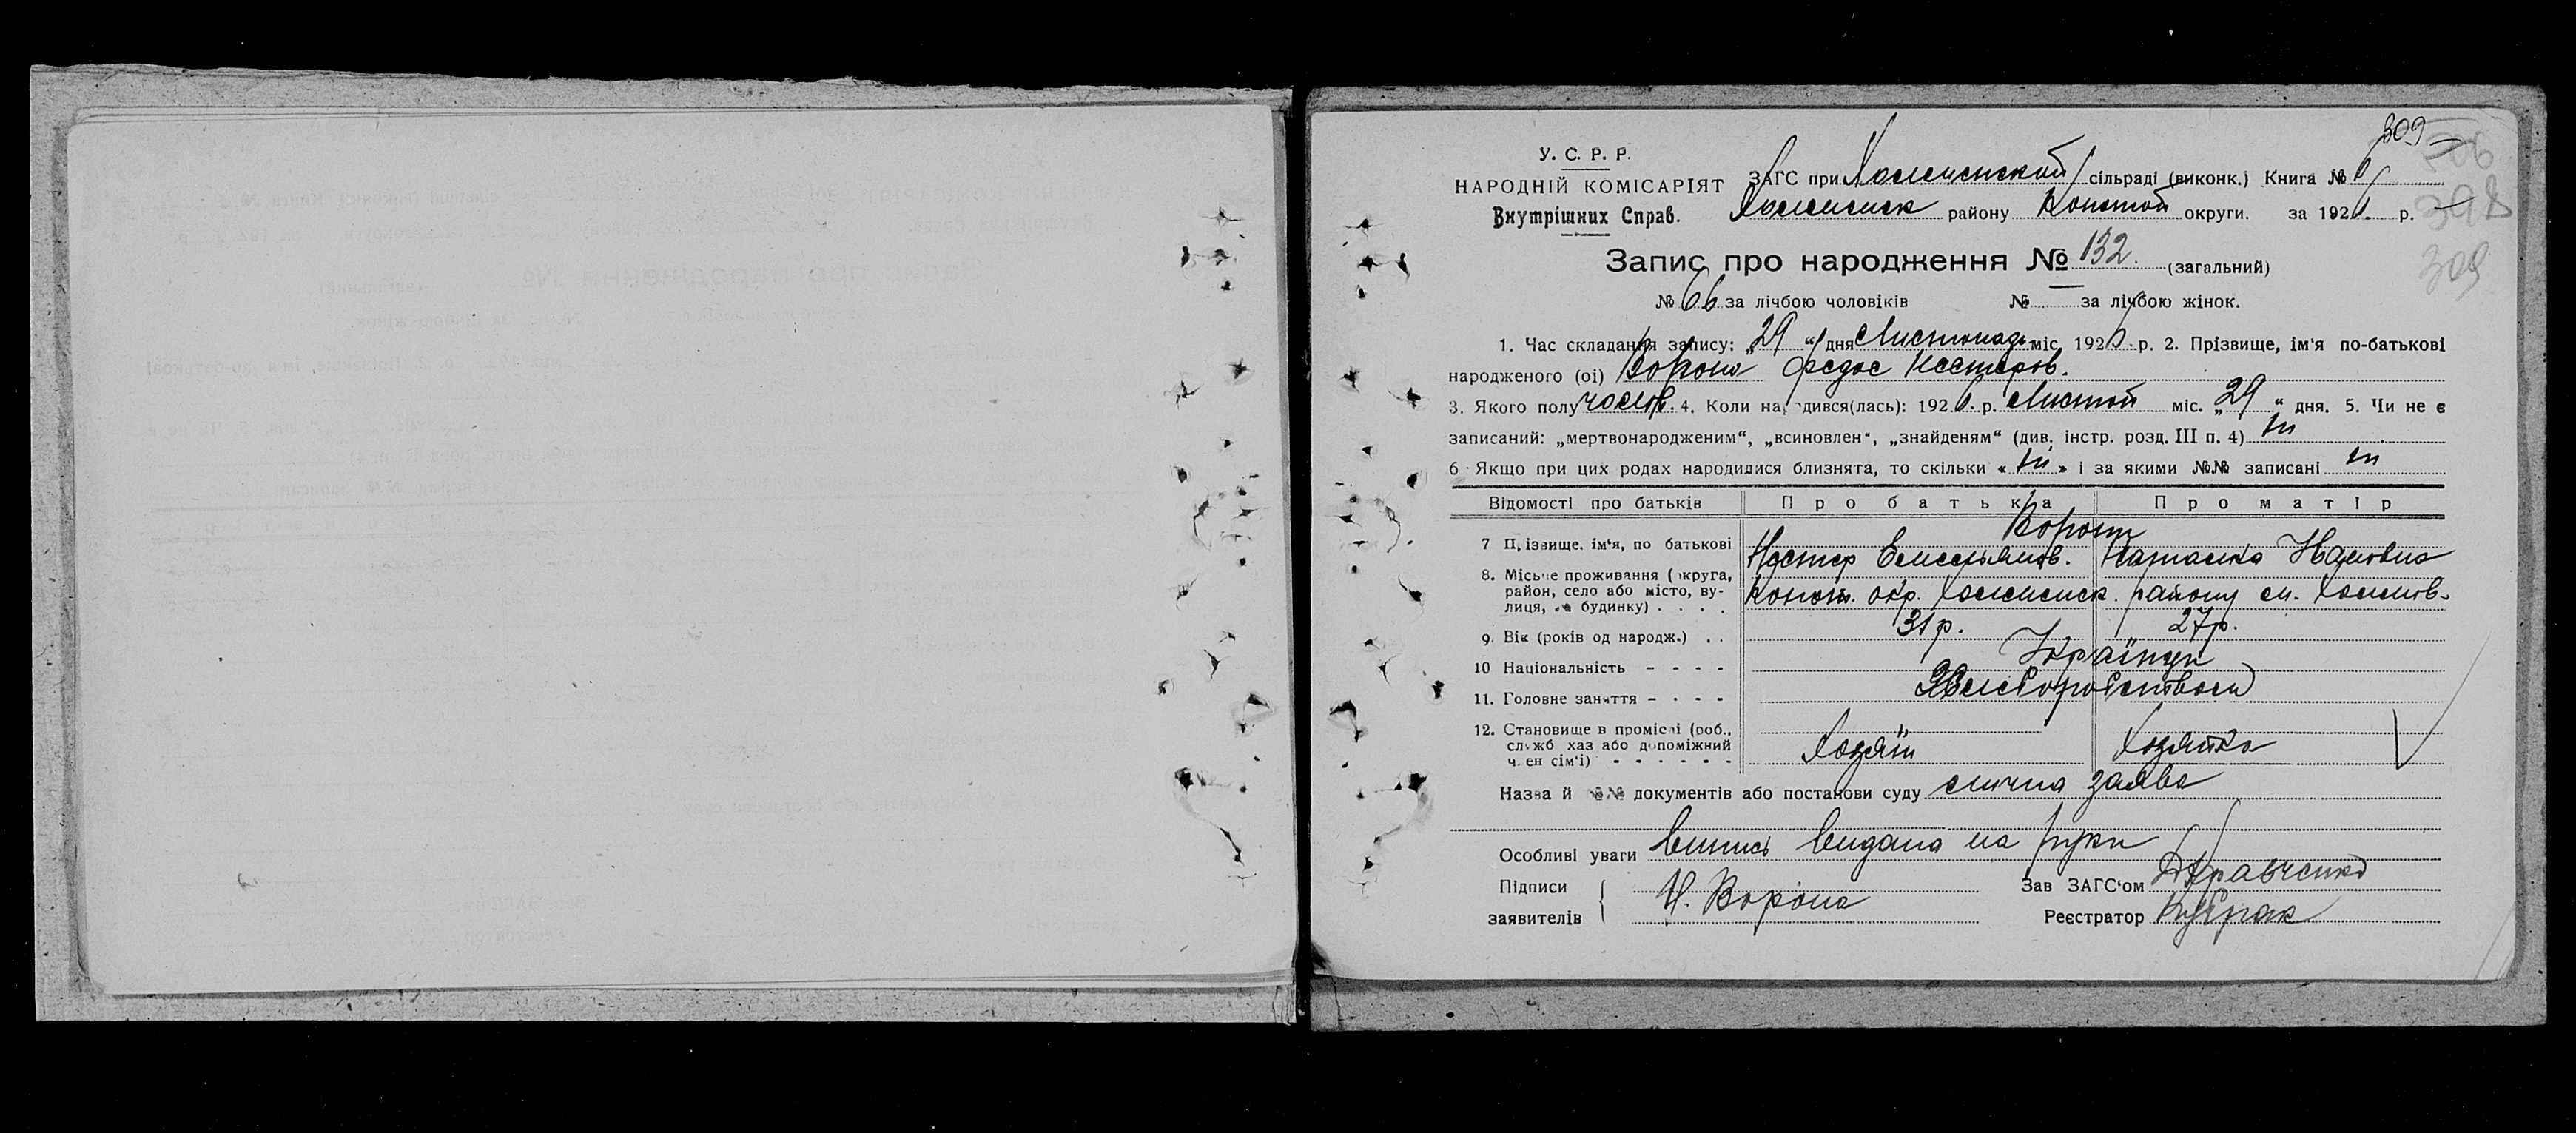 309
306
398
309
У. С. Р. Р.
НАРОДНІЙ КОМІСАРІЯТ
Внутрішних Справ.
ЗАГС при сільраді (виконк.) Книга №
району Коното округи. за 192 р.
Запис про народження № 132. (загальний)
№ 66 за лічбою чоловіків № за лічбою жінок.
1. Час складання запису: „29“ дня Листопад міс. 192 р. 2. Прізвище, ім'я по-батькові
народженого (ої) Ворона Федос Нестеров.
3. Якого полу чолов. 4. Коли народився(лась): 192 р. Листоп міс. „29“ дня. 5. Чи не є
записаний: „мертвонародженим“, „всиновлен“, „знайденям“ (див. інстр. розд. III п. 4) ні
6 Якщо при цих родах народилися близнята, то скільки « ні » і за якими №№ записані ні
Відомості про батьків Про батька Про матір
7 Прізвище, ім'я, по батькові Ворони
Нестер Емельянов. Наталка
8. Місьце проживання (округа,
район, село або місто, ву-
лиця, № будинку) . . . . Коног. окр. району
9. Вік (років од народж.) . . 31 р. 27 р.
10 Національність - - - - Українці
11. Головне заняття - - - - Хліборобством
12. Становище в промісьлі (роб.,
служб хаз або допоміжний
член сім'ї) - - - - - - Хозяїн Хозяйка
Назва й №№ документів або постанови суду слична заява
Особливі уваги Випись видана на руки
Підписи
заявителів Н. Ворона
Зав ЗАГС'ом Кравченко
Реєстратор